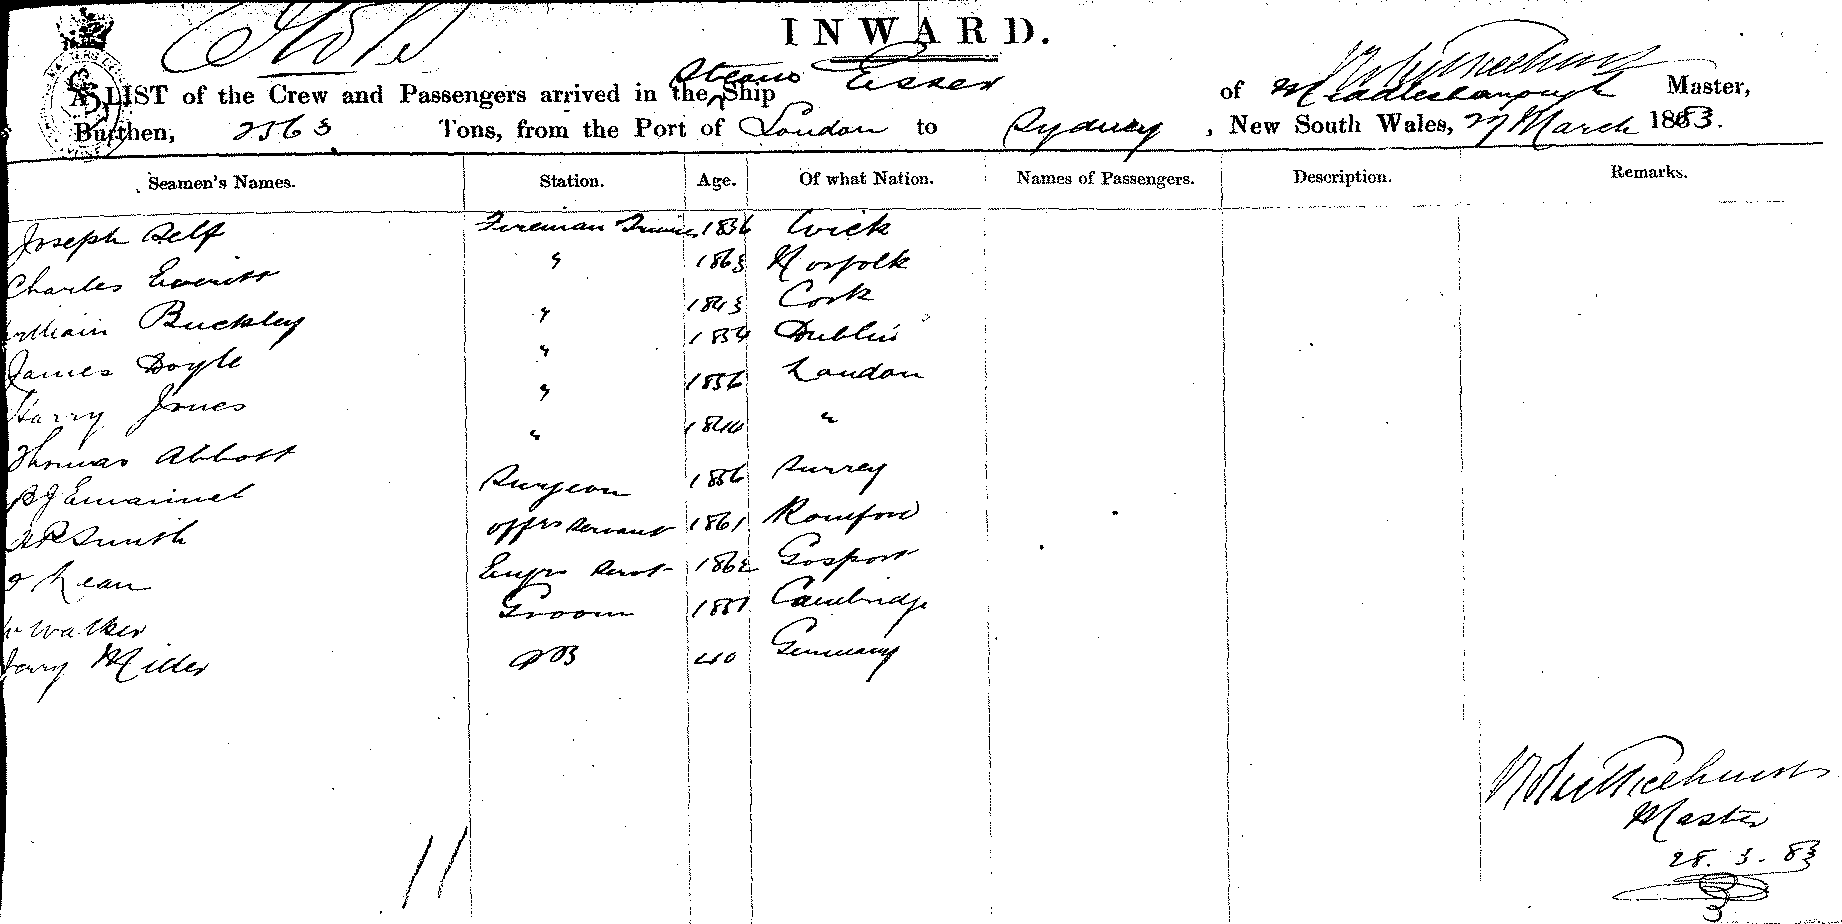 INWARD.
A LIST of the Crew and Passengers arrived in the Steam Ship Essex of Middlesborough Master,
Burthen, 2563 Tons, from the Port of London to Sydney, New South Wales, 27 March 1883.
Seamen's Names. Station. Age. Of what Nation. Names of Passengers. Description. Remarks.
Joseph Self Fireman 1836 Wick
Charles Everitt " 1863 Norfolk
William Buckley " 1843 Cork
James Doyle " 1854 Dublin
Harry Jones " 1856 London
Thomas Abbott " 1844 "
Emanuel Surgeon 1856 Surrey
Smith offrs servant 1861 Romford
Lean Engrs Servt 1862 Gosport
W Walker Groom 1857 Cambridge
Miller AB 40 Germany
11
Ticehurst
Master
28. 3. 83